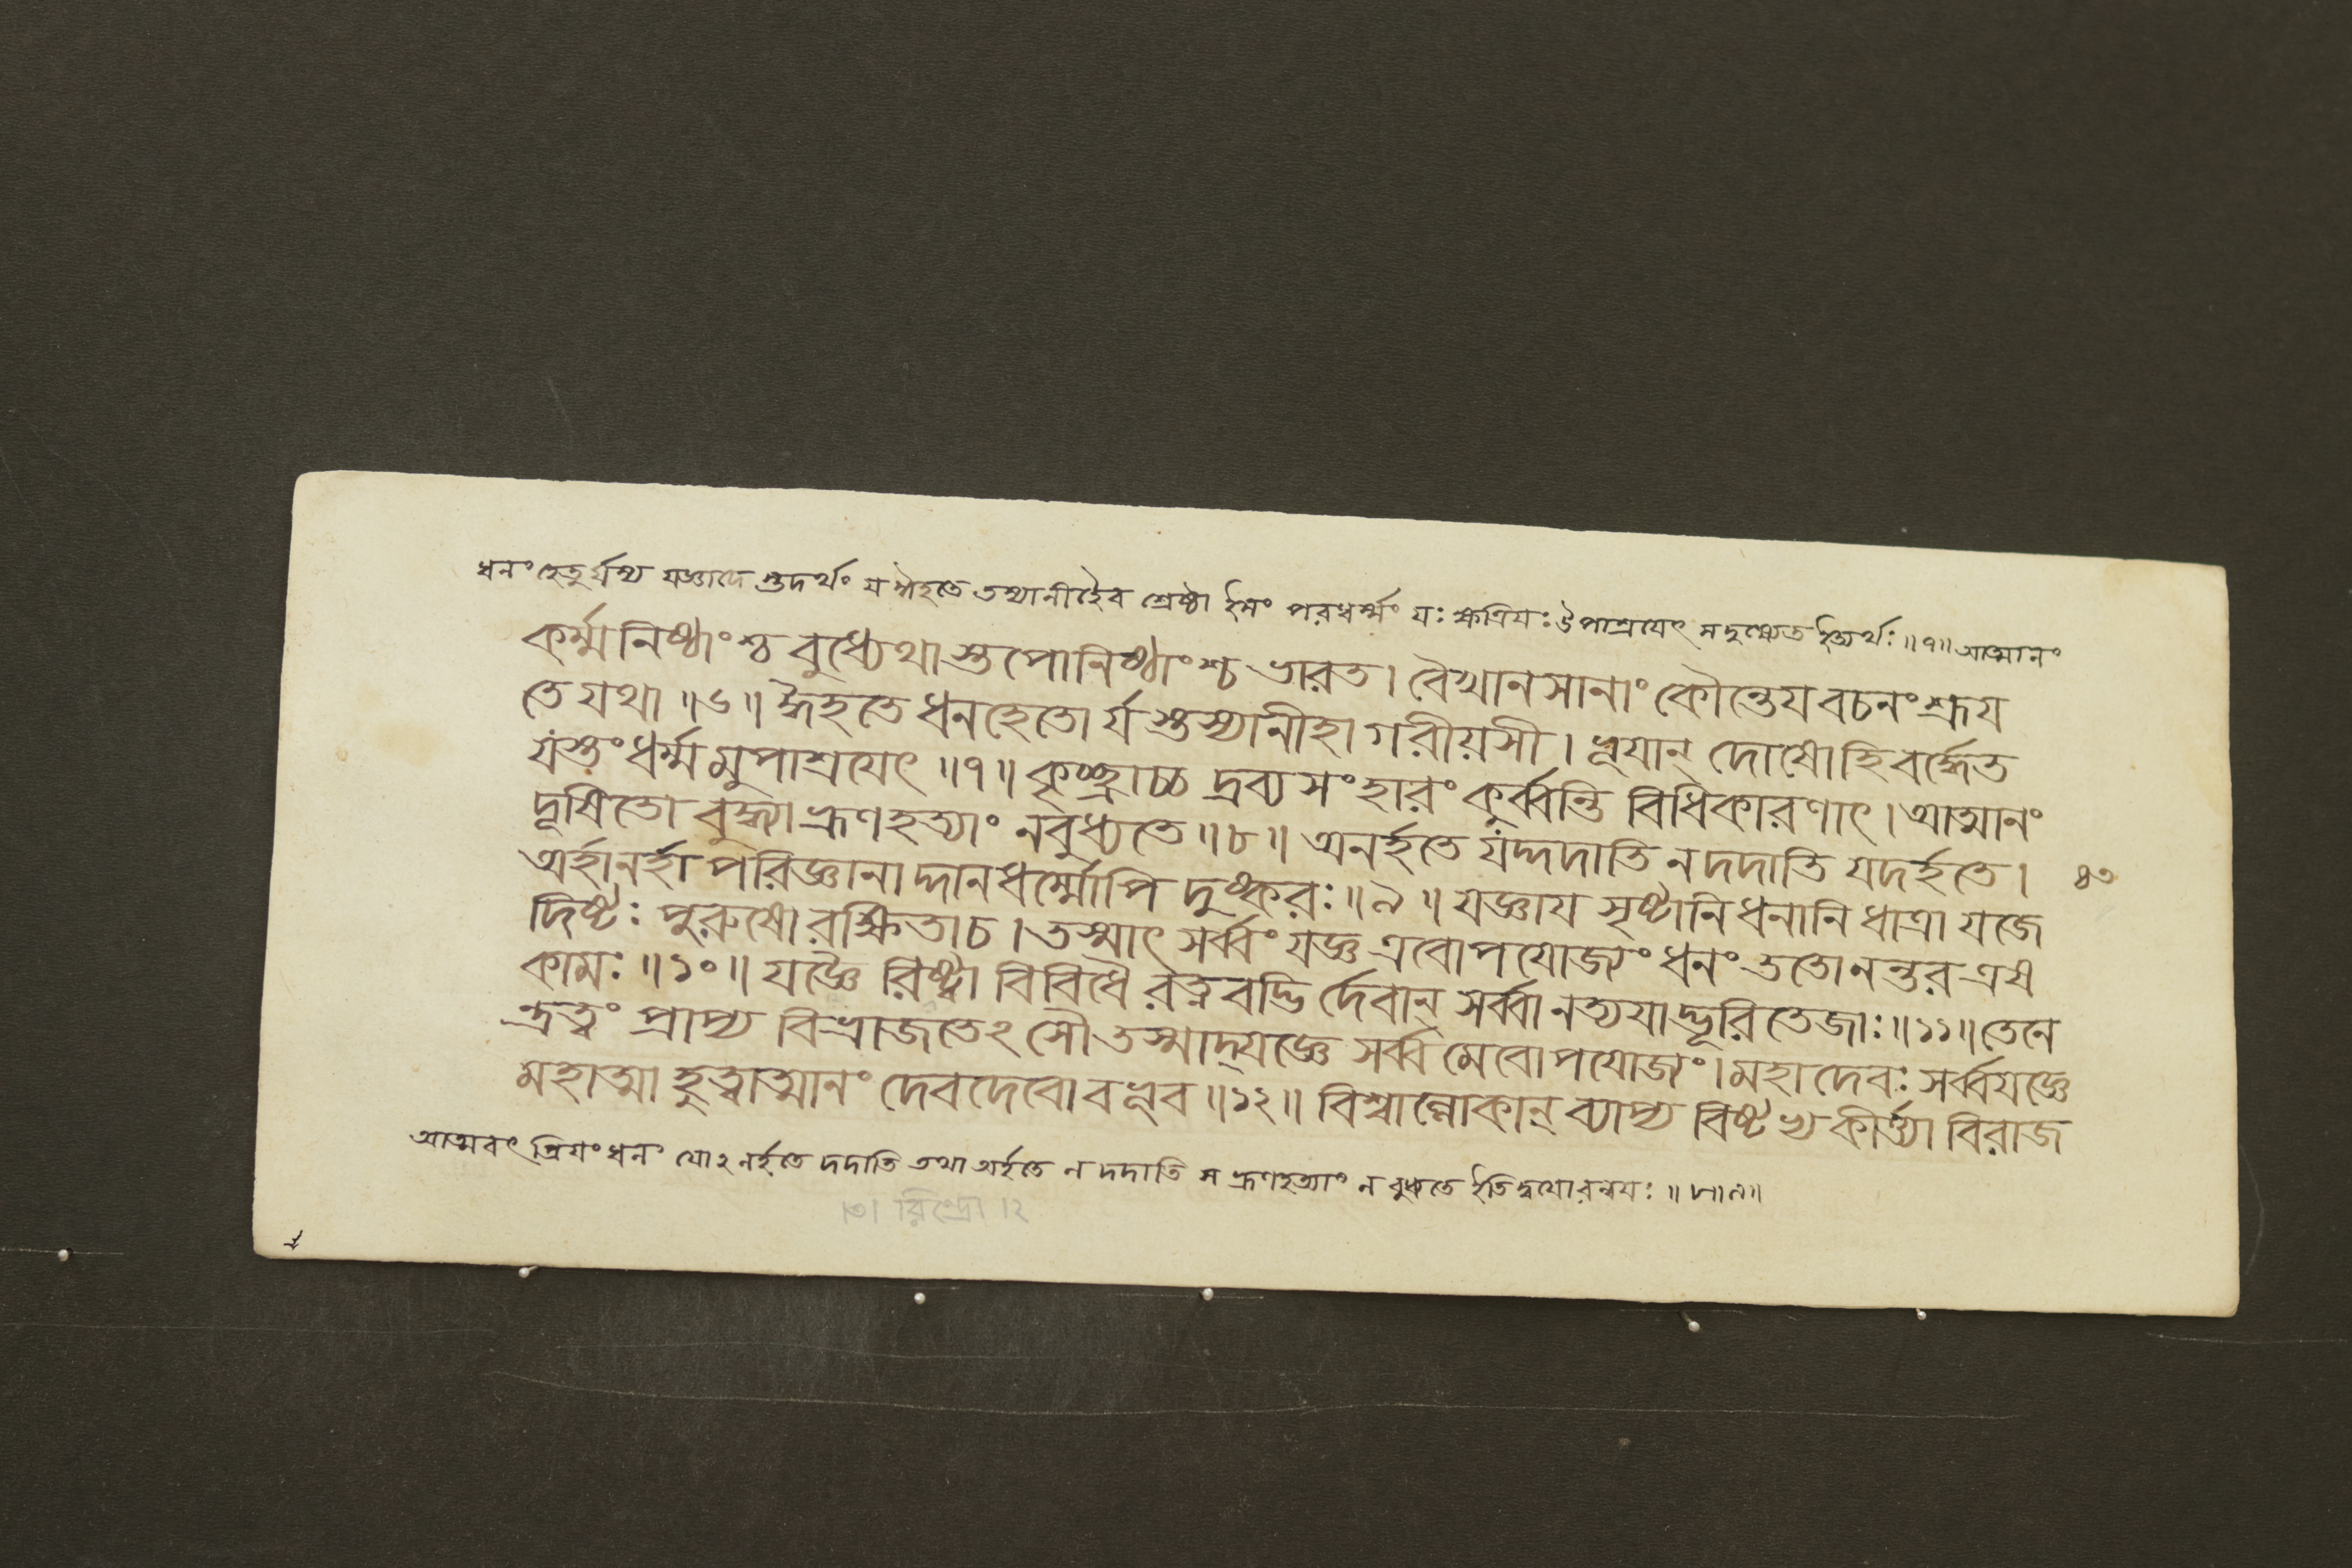 ধনং হেতুর্যস্য যজ্ঞাদে স্তদর্থং য ঈহতে তস্যানীহৈব শ্রেষ্ঠা ইমং পরধর্ম্মং যঃ ক্ষত্রিযঃ উপাশ্রযেৎ স দুষ্যেত ইত্যর্থঃ ॥৭॥ আত্মানং
কর্ম্মনিষ্ঠাংশ্চ বুধ্যেথাস্তপোনিষ্ঠাংশ্চ ভারত। বৈখানসানাং কৌন্তেয বচনং শ্রূয
তে যথা ॥৬॥ ঈহতে ধনহেতো র্যস্তস্যানীহা গরীয়সী। ভূযান্ দোষোহি বর্দ্ধেত
যস্তংধর্ম্মমুপাশ্রযেৎ ॥৭॥ কৃচ্ছ্রাচ্চ দ্রব্যসংহারং কুর্ব্বন্তি বিধিকারণাৎ। আত্মানং
দূষিতো বুদ্ধ্যা ভ্রূণহত্যাং নবুধ্যতে ॥৮॥ অনর্হতে যদ্দদাতি ন দদাতি যদর্হতে।
অর্হানর্হা পরিজ্ঞানা দ্দানধর্ম্মোপি দুষ্করঃ ॥৯॥ যজ্ঞায সৃষ্টানি ধনানি ধাত্রা যজে
৪৩
দিষ্টঃ পুরুষো রক্ষিতাচ। তস্মাৎ সর্ব্বং যজ্ঞ এবোপযোজ্যং ধনং ততোনন্তর এষ
কামঃ ॥১০॥ যজ্ঞৈ রিষ্ট্বা বিবিধৈ রত্নবদ্ভি র্দেবান্ সর্ব্বানত্যযাদ্ভূরিতেজাঃ ॥১১॥ তেনে
ন্দ্রত্বং প্রাপ্য বিভ্রাজতেঽসৌ তস্মাদ্যজ্ঞে সর্ব্বমেবোপযোজ্যং। মহাদেবঃ সর্ব্বযজ্ঞে
মহাত্মা হুত্বাত্মানং দেবদেবো বভূব ॥১২॥ বিশ্বাল্লোকান্ ব্যাপ্য বিষ্টভ্য কীর্ত্ত্যা বিরাজ
আত্মবৎ প্রিযং ধনং যোঽনর্হতে দদাতি তথা অর্হতে ন দদাতি স ভ্রূণহত্যাং ন বুধ্যতে ইতি দ্বযোরন্বযঃ ॥৮॥৯॥